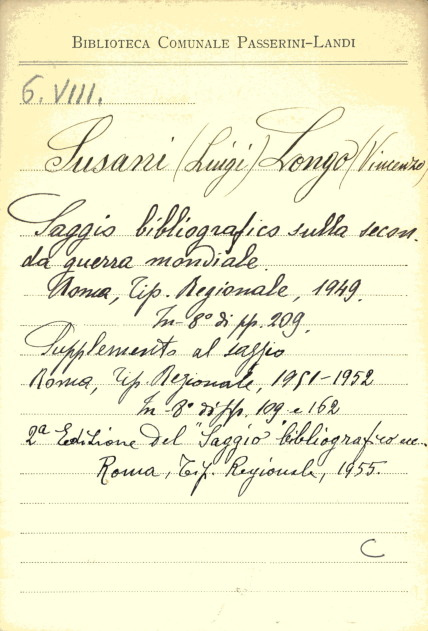 BIBLIOTECA COMUNALE PASSERINI-LANDI
6. VIII.
Susani (Luigi) Longo (Vincenzo)
Saggio bibliografico sulla secon-
da guerra mondiale.
Roma, Tip. Regionale, 1949.
In-8° di pp. 209.
Supplemento al saggio
Roma, Tip. Regionale, 1951-1952
In-8° di pp. 109 e 162
2ª Edizione del "Saggio bibliografico ecc...
Roma, Tip. Regionale, 1955.
C